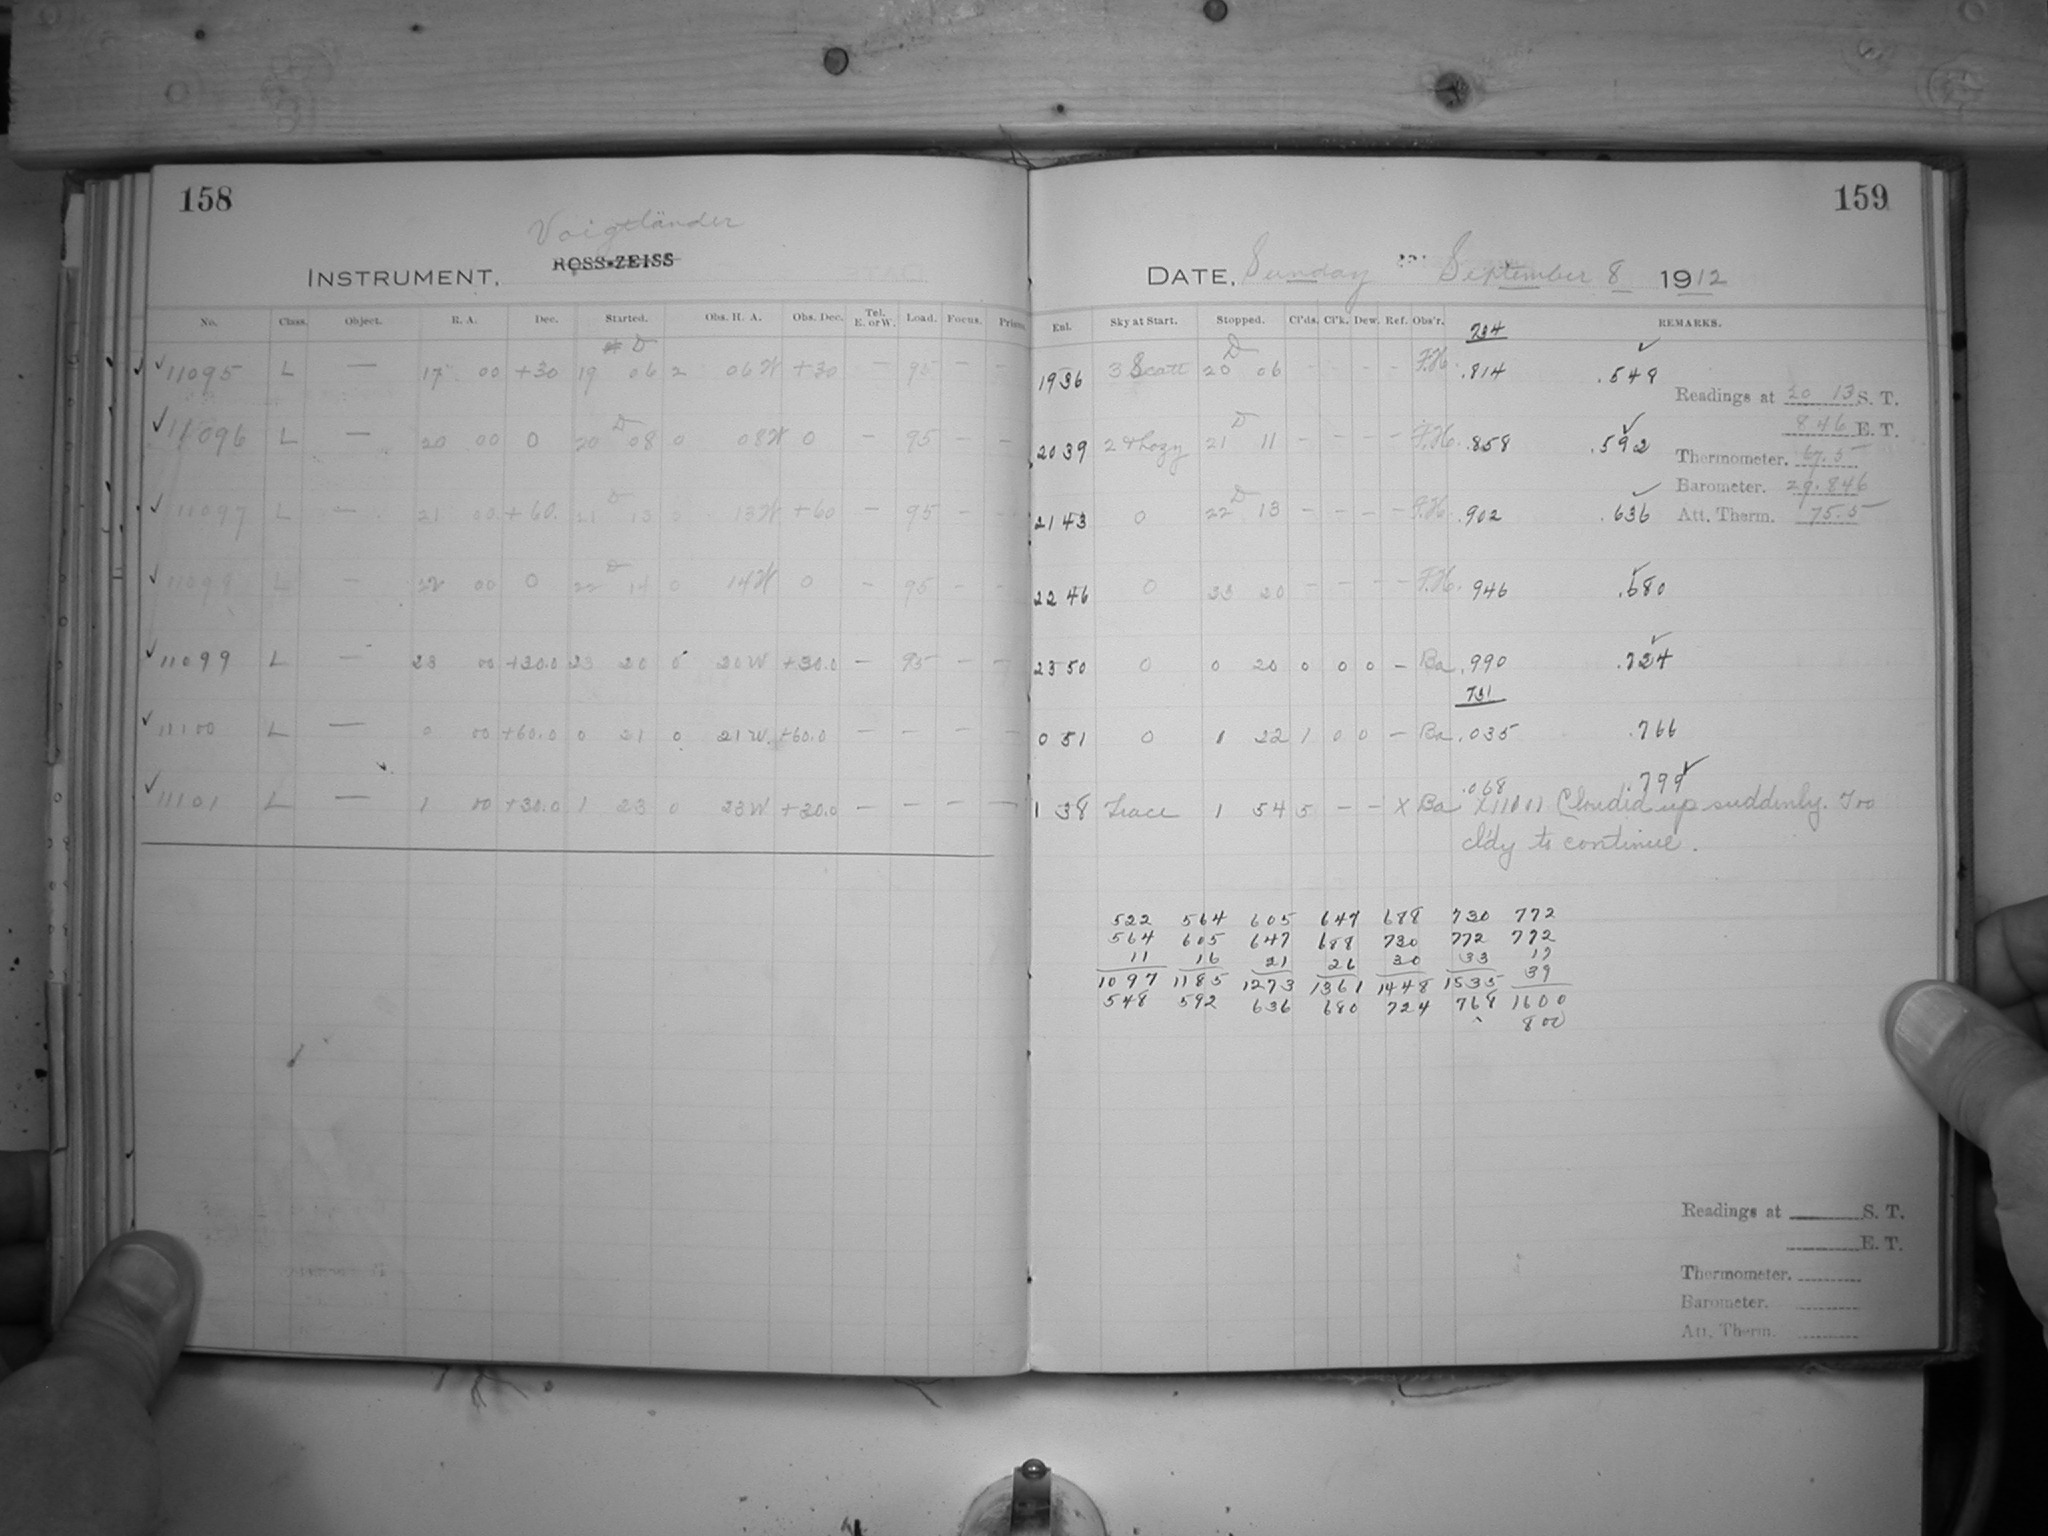 158
Voigtländer
INSTRUMENT, ROSS-ZEISS
No. Class. Object. R. A. Dec. Started. Obs. H. A. Obs. Dec. Tel. E. or W. Load. Focus. Prism
✓ 11095 L — 17 00 +30 19 06 2 06W +30 — 95 — —
✓ 11096 L — 20 00 0 20 08 0 08W 0 — 95 — —
✓ 11097 L — 21 00 +60. 21 13 0 13W +60 — 95 — —
✓ 11098 L — 22 00 0 22 14 0 14W 0 — 95 — —
✓ 11099 L — 23 00 +30.0 23 20 0 20W +30.0 — 95 — —
✓ 11100 L — 0 00 +60.0 0 21 0 21W. +60.0 — — — —
✓ 11101 L — 1 00 +30.0 1 23 0 23W +30.0 — — — —
159
DATE, Sunday September 8 1912
Exl. Sky at Start. Stopped. Cl'ds. Cl'k. Dew. Ref. Obs'r. REMARKS.
734
1936 3 Scatt 20 06 - - - - F.H. .814 .548
Readings at 20 13 S. T.
8.46 E. T.
2039 21 11 - - - - F.H. .858 .592
Thermometer. 67.5
Barometer. 29.846
2143 0 22 13 - - - - F.H. .902 .636
Att. Therm. 75.5
2246 0 23 20 - - - - F.H. .946 .680
2350 0 0 20 0 0 0 - Ba .990 .724
731
0 51 0 1 22 1 0 0 - Ba .035 .766
.068 .799
1 38 Trace 1 54 5 - - X Ba X11101 Clouded up suddenly. Too
cl'dy to continue.
522 564 605 647 688 730 772
564 605 647 688 730 772 772
11 16 21 26 30 33 17
39
1097 1185 1273 1361 1448 1535 1600
548 592 636 680 724 768 800
Readings at S. T.
E. T.
Thermometer.
Barometer.
Att. Therm.